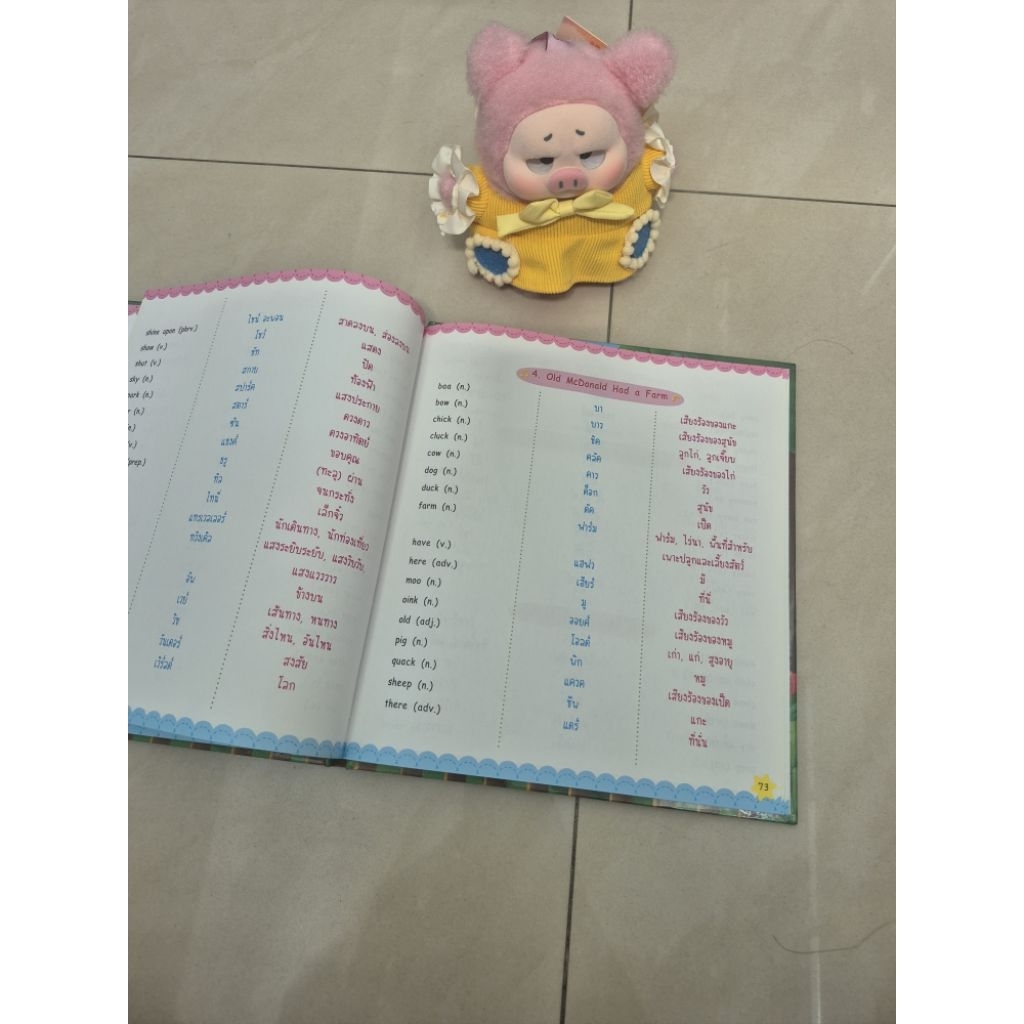 shine upon (phrv.) ไชน์ อะพอน สาดลงบน, ส่องลงบน
show (v.) โชว์ แสดง
shut (v.) ชัท ปิด
sky (n.) สกาย ท้องฟ้า
สปาร์ค แสงประกาย
สตาร์ ดวงดาว
ซัน ดวงอาทิตย์
แธงค์ ขอบคุณ
(prep.) ธรู (ทะลุ) ผ่าน
ทิล จนกระทั่ง
ไทนี่ เล็กจิ๋ว
แทรเวลเลอร์ นักเดินทาง, นักท่องเที่ยว
ทวิงเคิล แสงระยิบระยับ, แสงวิบวับ,
แสงแวววาว
อัพ ข้างบน
เวย์ เส้นทาง, หนทาง
วิช สิ่งไหน, อันไหน
วันเดอร์ สงสัย
เวิร์ลด์ โลก
4. Old McDonald Had a Farm
baa (n.) บา เสียงร้องของแกะ
bow (n.) บาว เสียงร้องของสุนัข
chick (n.) ชิค ลูกไก่, ลูกเจี๊ยบ
cluck (n.) คลัค เสียงร้องของไก่
cow (n.) คาว วัว
dog (n.) ด็อก สุนัข
duck (n.) ดัค เป็ด
farm (n.) ฟาร์ม ฟาร์ม, ไร่นา, พื้นที่สำหรับ
เพาะปลูกและเลี้ยงสัตว์
have (v.) แฮฟว มี
here (adv.) เฮียร์ ที่นี่
moo (n.) มู เสียงร้องของวัว
oink (n.) ออยค์ เสียงร้องของหมู
old (adj.) โอลด์ เก่า, แก่, สูงอายุ
pig (n.) พิก หมู
quack (n.) แควค เสียงร้องของเป็ด
sheep (n.) ชีพ แกะ
there (adv.) แดร์ ที่นั่น
73